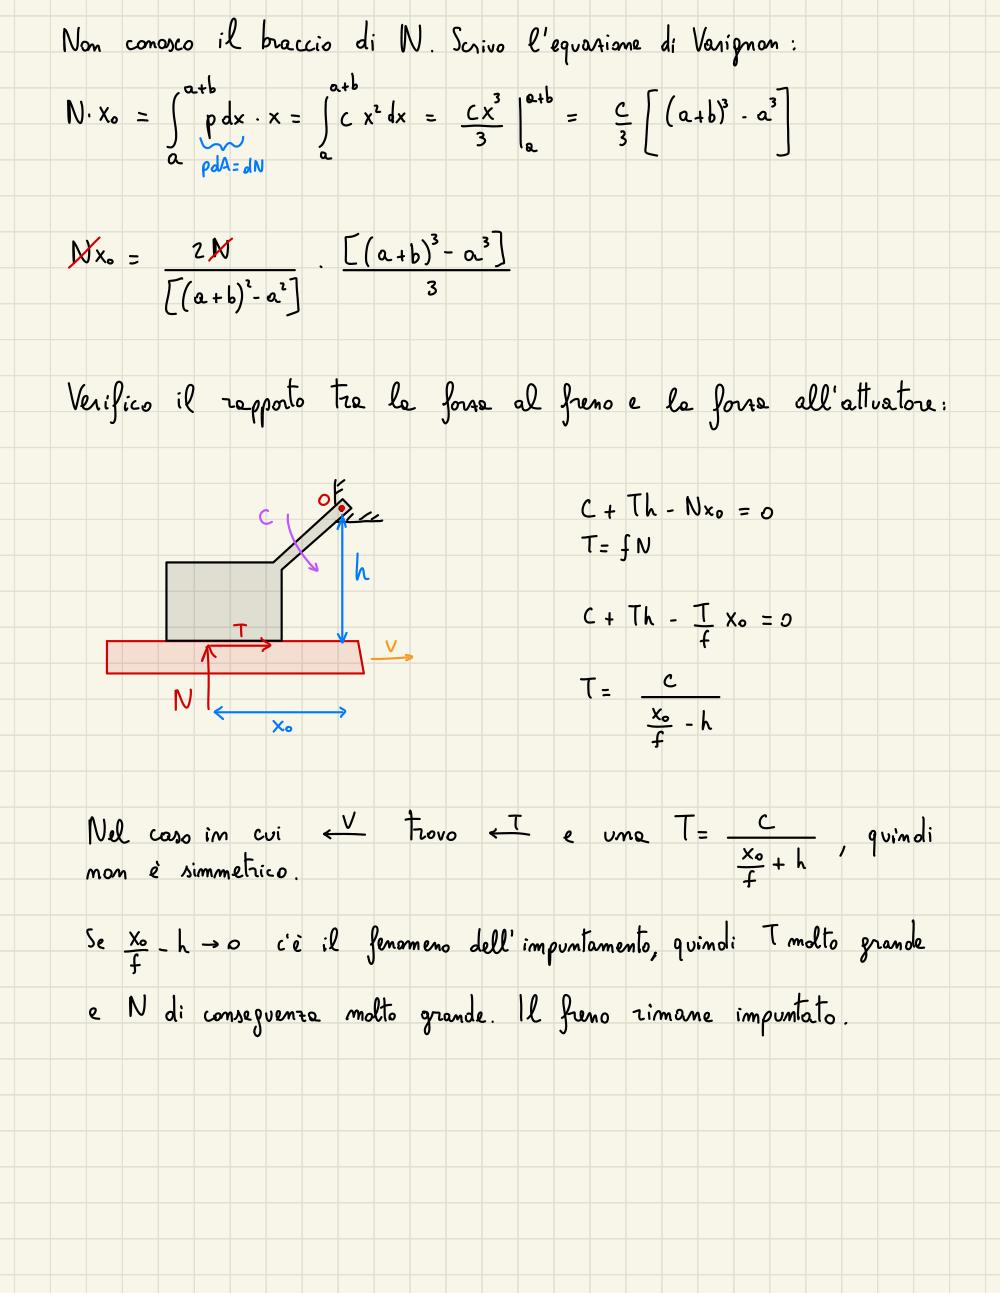 Non conosco il braccio di N. Scrivo l'equazione di Varignon:
N · x₀ = ∫ₐᵃ⁺ᵇ p dx · x = ∫ₐᵃ⁺ᵇ c x² dx = cx³/3 |ₐᵃ⁺ᵇ = c/3 [(a+b)³ - a³]
pdA = dN
Nx₀ = 2N/[(a+b)² - a²] · [(a+b)³ - a³]/3
Verifico il rapporto tra la forza al freno e la forza all'attuatore:
O
C
h
T
V
N
x₀
C + Th - Nx₀ = 0
T = fN
C + Th - T/f x₀ = 0
T = C/(x₀/f - h)
Nel caso in cui ←V trovo ←T e una T = C/(x₀/f + h), quindi
non è simmetrico.
Se x₀/f - h → 0 c'è il fenomeno dell'impuntamento, quindi T molto grande
e N di conseguenza molto grande. Il freno rimane impuntato.